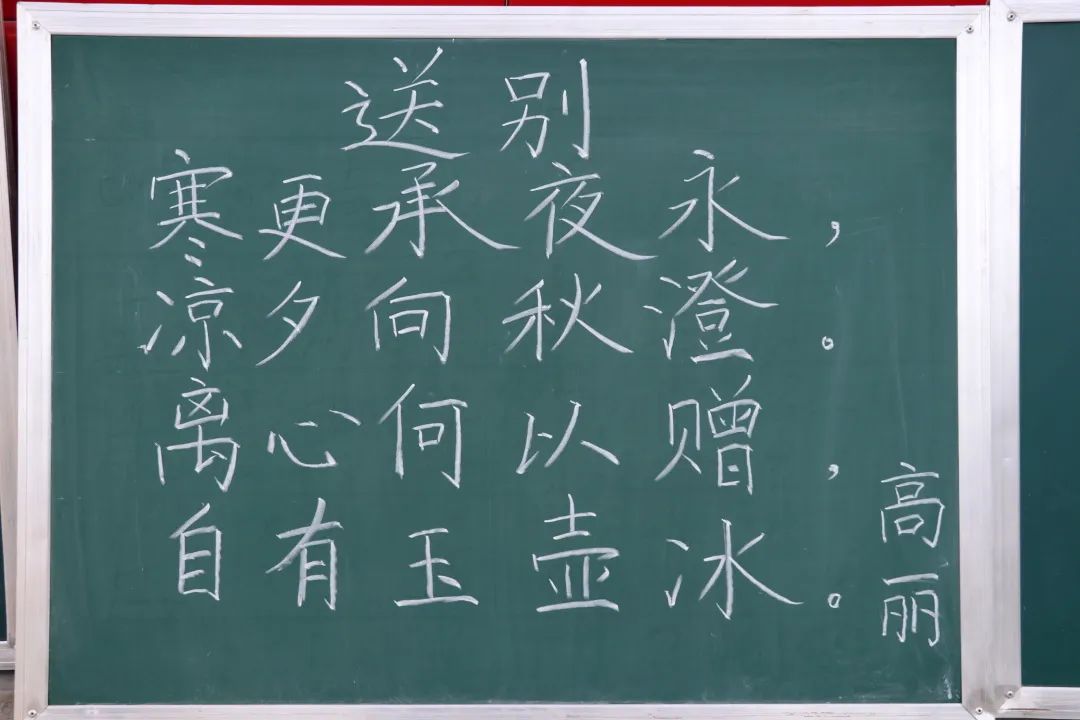 送别
寒更承夜永，
凉夕向秋澄。
离心何以赠，
自有玉壶冰。
高丽